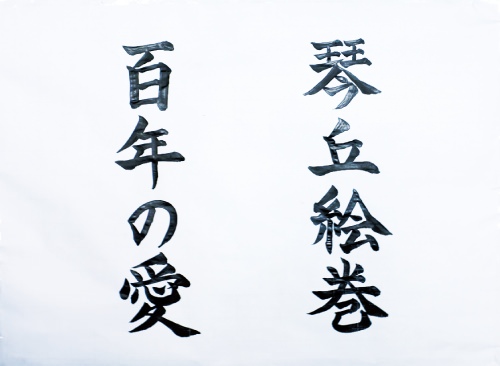 琴丘絵巻
百年の愛